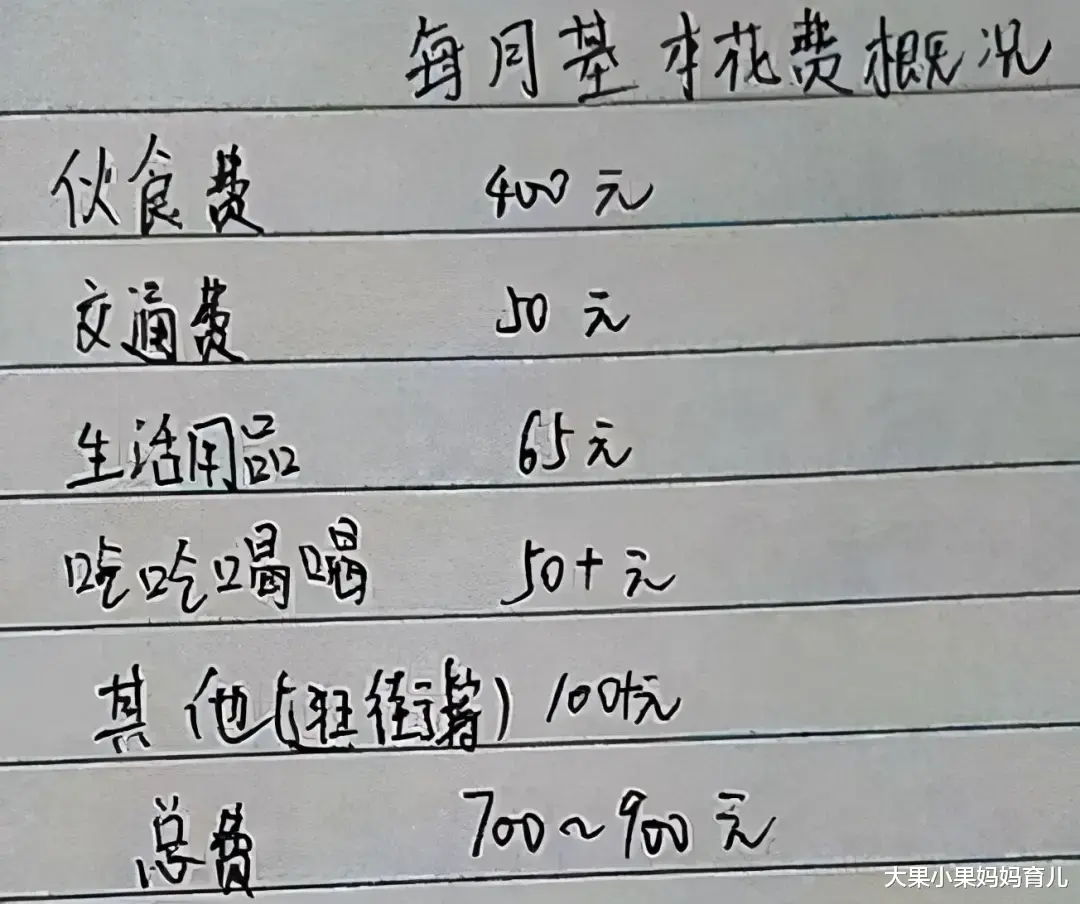 每月基本花费概况
伙食费 400元
交通费 50元
生活用品 65元
吃吃喝喝 50+元
其他(逛街等) 100+元
总费 700~900元
大果小果妈妈育儿